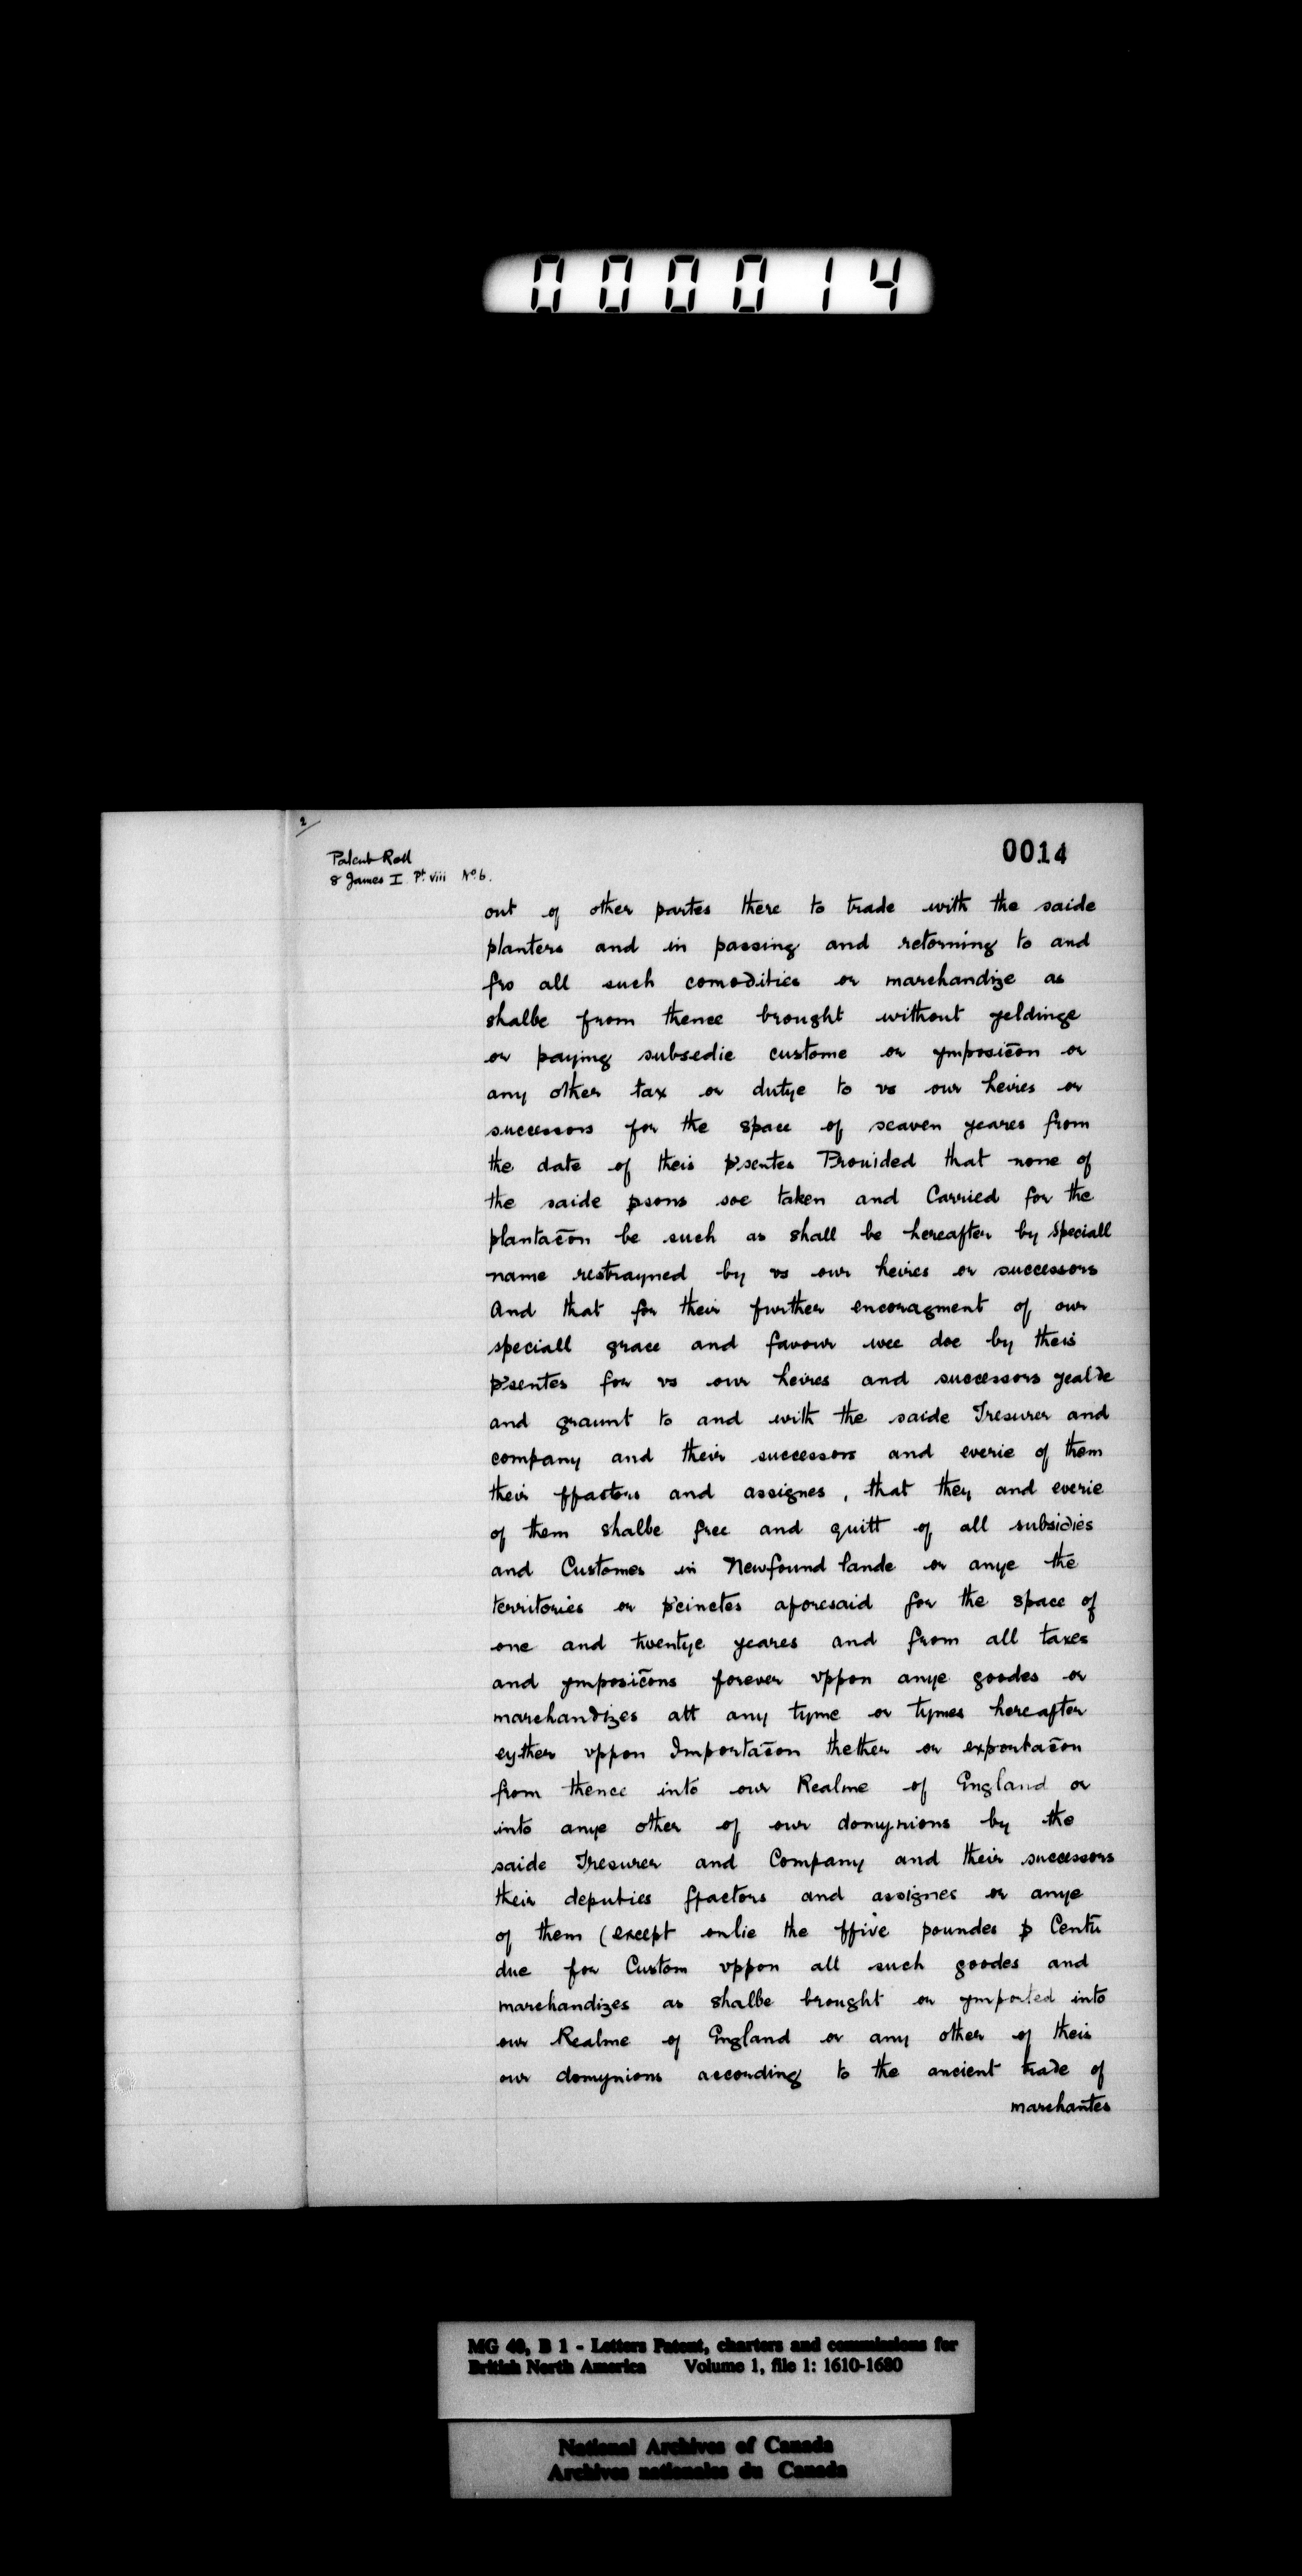 000014
2
0014
Patent Roll
8 James I Pt. viii No 6.
out of other partes there to trade with the saide
planters and in passing and retorning to and
fro all such comodities or marchandize as
shalbe from thence brought without yeldinge
or paying subsedie custome or ymposicōn or
any other tax or dutye to vs our heires or
successors for the space of seaven yeares from
the date of theis p'sentes Provided that none of
the saide psons soe taken and Carried for the
plantacōn be such as shall be hereafter by speciall
name restrayned by vs our heires or successors
And that for their further encoragment of our
speciall grace and favour wee doe by theis
p'sentes for vs our heires and successors yealde
and graunt to and with the saide Tresurer and
company and their successors and everie of them
their ffactors and assignes, that they and everie
of them shalbe free and quitt of all subsidies
and Customes in Newfound lande or anye the
territories or p'cinctes aforesaid for the space of
one and twentye yeares and from all taxes
and ymposicōns forever vppon anye goodes or
marchandizes att any tyme or tymes hereafter
eyther vppon Importacōn thether or exportacōn
from thence into our Realme of England or
into anye other of our domynions by the
saide Tresurer and Company and their successors
their deputies ffactors and assignes or anye
of them (except onlie the ffive poundes p Centū
due for Custom vppon all such goodes and
marchandizes as shalbe brought or ymported into
our Realme of England or any other of theis
our domynions according to the ancient trade of
marchantes
MG 40, B 1 - Letters Patent, charters and commissions for
British North America Volume 1, file 1: 1610-1680
National Archives of Canada
Archives nationales du Canada